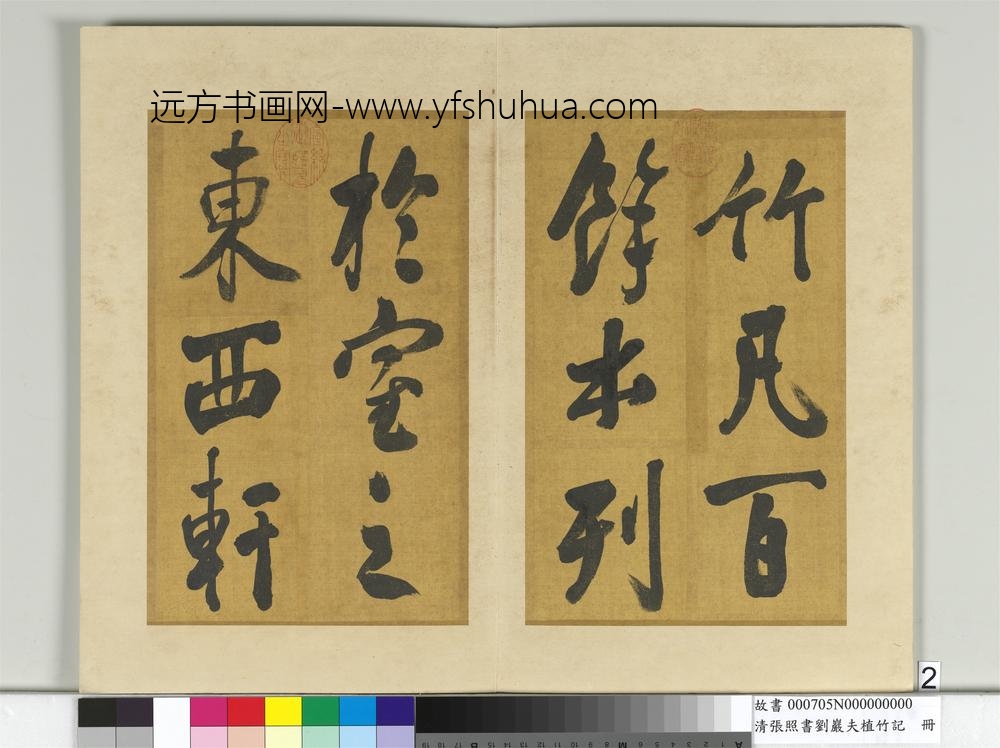 远方书画网-www.yfshuhua.com
竹凡百
餘本列
於室之
東西軒
2
故書 000705N000000000
清張照書劉巖夫植竹記 冊